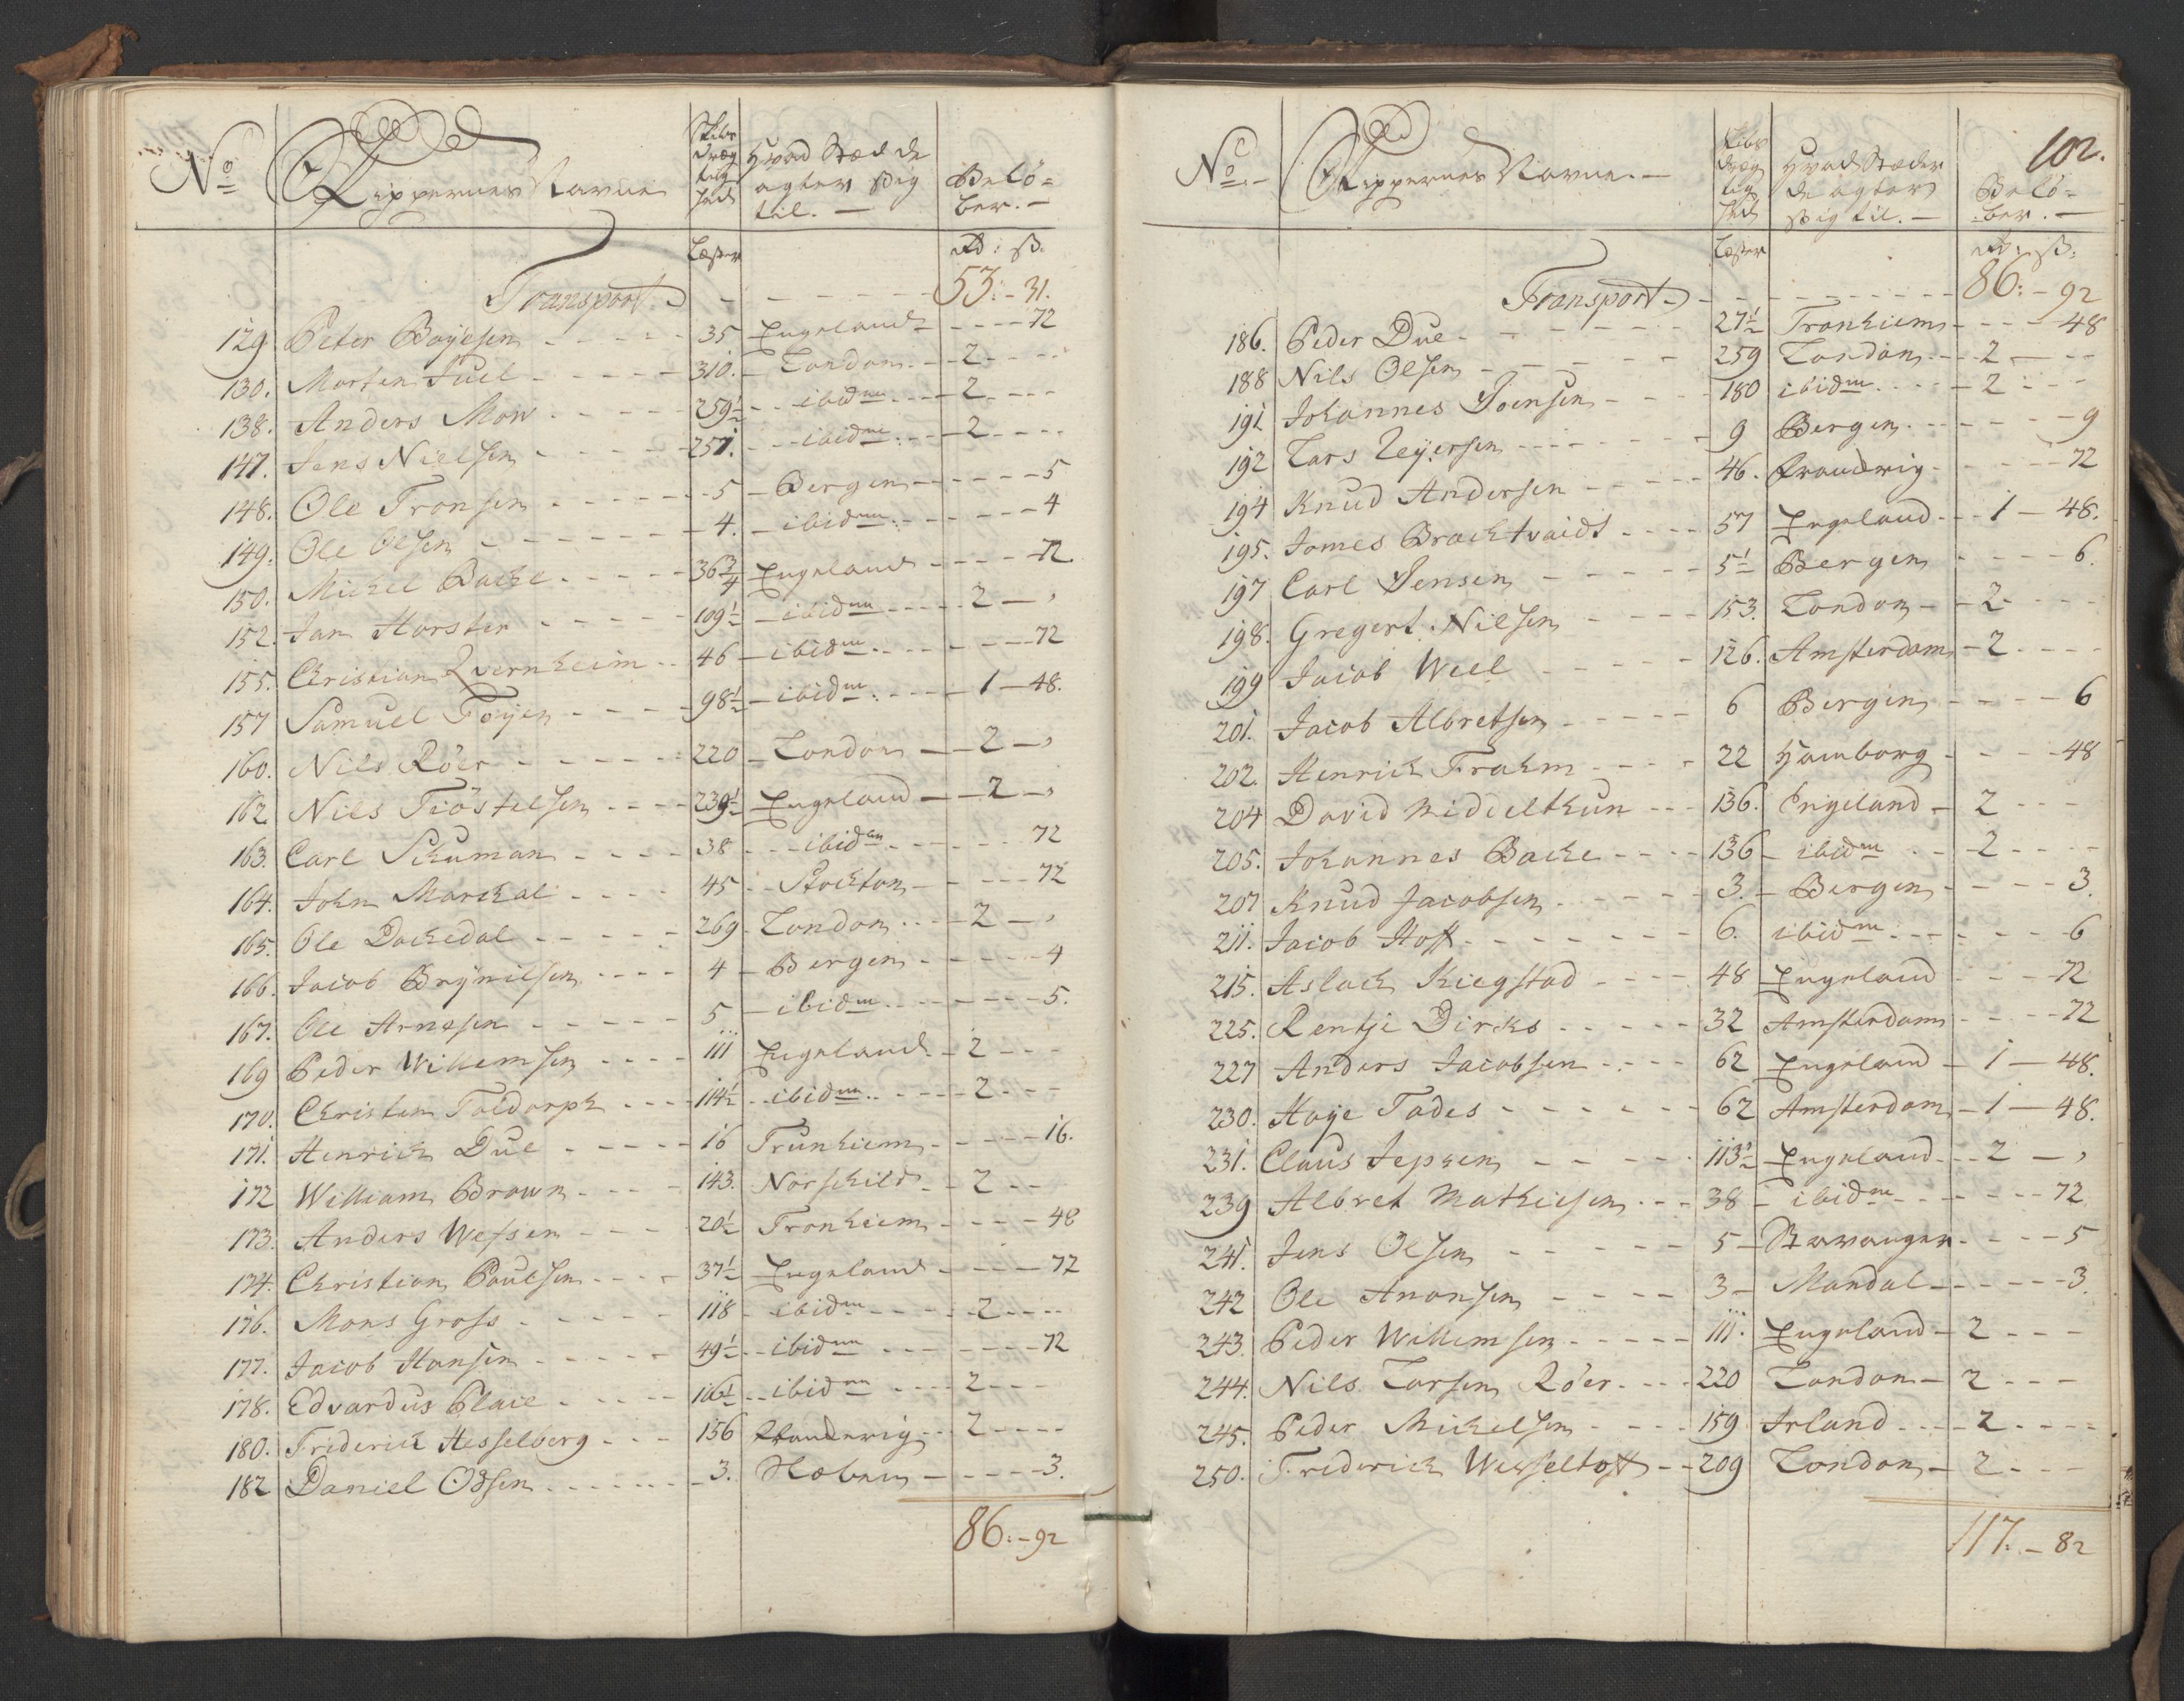 No Skippernes Navne Skibs dræg tig hed Hvad Stæd de agter sig til. Belö= ber.
Læster Rd: ß.
Transport 53:-31.
129. Peter Boyesen 35 Engeland 72
130. Morten Juel 310. London 2
138. Anders Mow 259½ ibidm 2
147. Jens Nielsen 251. ibidm 2
148. Ole Tronsen 5 Bergen 5
149. Ole Olsen 4. ibidm 4
150. Michel Bache 36¾ Engeland 72
152. Jan Horster 109½ ibidm 2
155. Christian Qvernheim 46 ibidm 72
157 Samuel Föyen 98½ ibidm 1-48.
160. Nils Röer 220 London 2
162 Nils Tiöstelsen 239½ Engeland 2
163. Carl Schuman 38 ibidm 72
164. John Marchal 45 Stockton 72
165. Ole Dackedal 269 London 2
166. Jacob Brynilsen 4 Bergen 4
167. Ole Arnesen 5 ibidm 5.
169 Peder Willemsen 111 Engeland 2
170. Christen Toldorph 114½ ibidm 2
171. Henrich Due 16 Trunhiem 16.
172 William Brown 143. Norschild 2
173. Anders Wessen 20½ Tronhiem 48
174. Christian Poulsen 37½ Engeland 72
176. Mons Gross 118 ibidm 2
177. Jacob Hansen 49½ ibidm 72
178. Edvardus Plaie 116½ ibidm 2
180. Friderich Hesselberg 156 2
182 Daniel Odsen 3. 3.
86:-92
102.
No Skippernes Navne. Skibs dræg tig hed Hvad Stæder de agter sig til. Belö= ber.
Læster Rd: ß:
Transport 86:-92
186. Peder Due 27½ Tronhiem 48
188 Nils Olsen 259 London 2
191 Johannes Joensen 180 ibidm 2
192 Lars Leyersen 9 Bergen 9
194 Knud Andersen 46. 72
195. James Brachtvaidt 57 Engeland 1-48.
197 Carl Jensen 5½ Bergen 6.
198. Gregert Nilsen 153. London 2
199 Jacob Weel 126. Amsterdam 2
201. Jacob Albretsen 6 Bergen 6
202. Henrich Frahm 22 Hamborg 48
204 David Middelthun 136. Engeland 2
205. Johannes Bache 136 ibidm 2
207 Knud Jacobsen 3. Bergen 3.
211. Jacob Hoff 6. ibidm 6
215. Aslach Kiegstad 48 Engeland 72
225. Rentje Dircks 32 Amsterdam 72
227 Anders Jacobsen 62 Engeland 1-48.
230. Haye Tades 62 Amsterdam 1-48.
231. Claus Jepsen 113½ Engeland 2
239 Albret Mathiesen 38 ibidm 72
241. Jens Olsen 5 Stavanger 5
242 Ole Anansen 3 Mandal 3.
243. Peder Willemsen 111. Engeland 2
244. Nils Larsen Röer 220 London 2
245. Peder Michelsen 159 Irland 2
250. Friderich Wesseltoft 209 London 2
117.-82